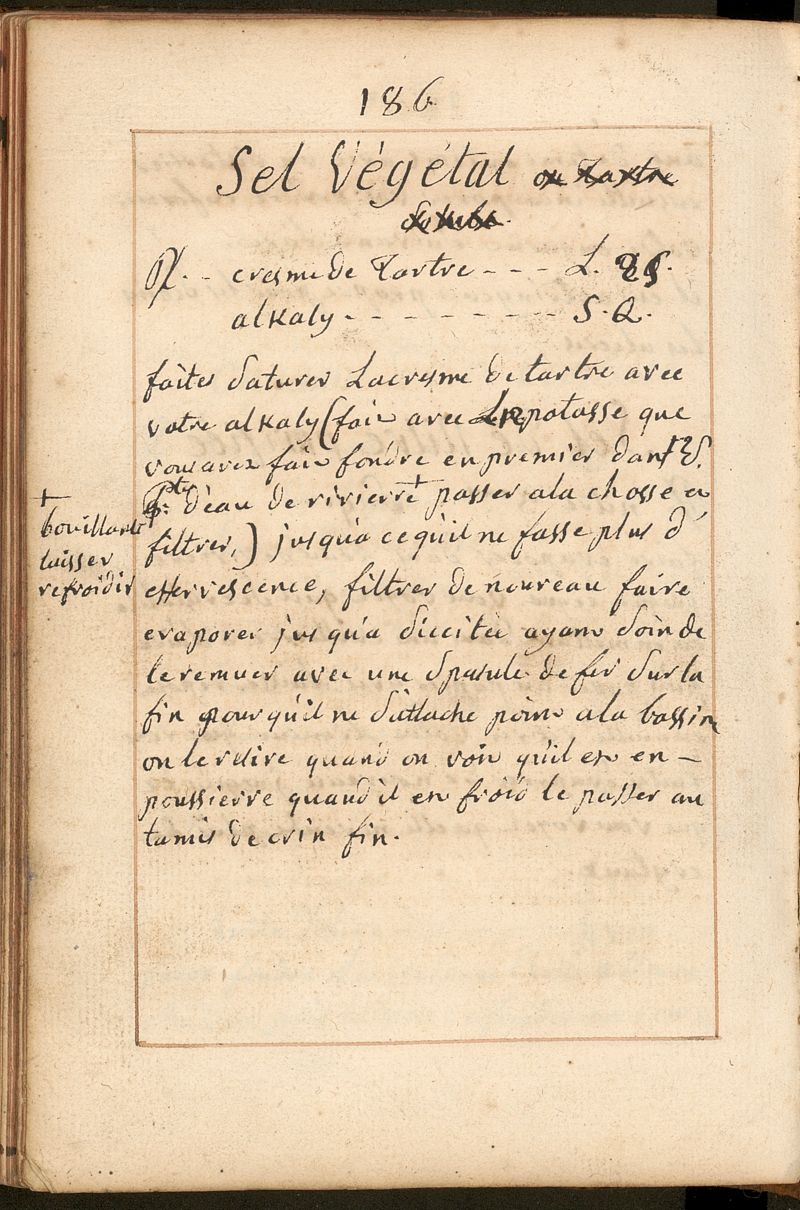 186
Sel Végétal ou Tartre
Soluble.
cresme de Tartre - - - L.
alkaly - - - - - - - - - S. Q.
faites saturer La cresme de tartre avec
votre alkaly (fait avec potasse que
vous avez fait fondre en premier dans
d'eau de rivierre + passer a la chosse et
filtrer,) jusqu'a ce qu'il ne fasse plus d'
effervescence, filtrer de nouveau faire
evaporer jusqu'a siccitée ayant soin de
le remuer avec une spatule de fer sur la
fin pour qu'il ne s'attache point a la bassine
on le retire quand on voit qu'il est en -
poussierre quand il est froid le passer au
tamis de crin fin.
+
bouillante
laisser
refroidir